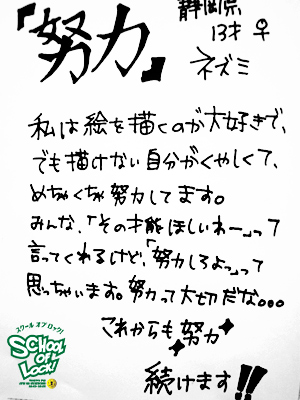 「努力」
静岡県
13才 ♀
ネズミ
私は絵を描くのが大好きで、
でも描けない自分がくやしくて、
めちゃくちゃ努力してます。
みんな、「その才能ほしいわー」って
言ってくれるけど、「努力しろよっ」って
思っちゃいます。努力って大切だな。。。
これからも努力
続けます!!
スクール オブ ロック!
SCHOOL
OF
LOCK!